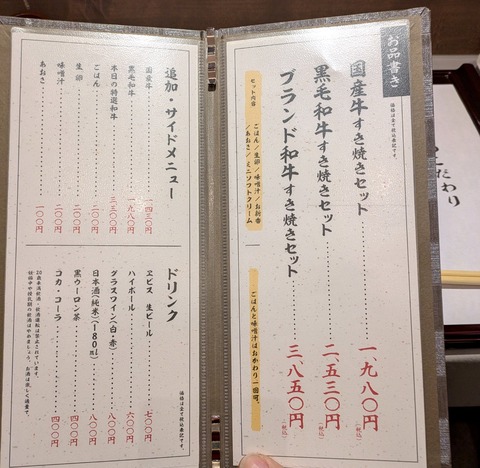 お品書き
価格は全て税込表記です。
国産牛すき焼きセット 一、九八〇円(税込)
黒毛和牛すき焼きセット 二、五三〇円(税込)
ブランド和牛すき焼きセット 三、八五〇円(税込)
セット内容
ごはん／生卵／味噌汁／お新香
／あおさ／ミニソフトクリーム
ごはんと味噌汁はおかわり一回可。
追加・サイドメニュー
国産牛 一、四三〇円
黒毛和牛 一、九八〇円
本日の特選和牛 三、三〇〇円
ごはん 二〇〇円
生卵 一〇〇円
味噌汁 二〇〇円
あおさ 一〇〇円
ドリンク
価格は全て税込表記です。
ヱビス 生ビール 七〇〇円
ハイボール 六〇〇円
グラスワイン(白・赤) 八〇〇円
日本酒(純米)(180ml) 八〇〇円
黒ウーロン茶 四〇〇円
コカ・コーラ 四〇〇円
20歳未満飲酒・飲酒運転は禁止されています。
妊娠中や授乳期の飲酒はやめましょう。お酒は楽しく適量で。
だわり